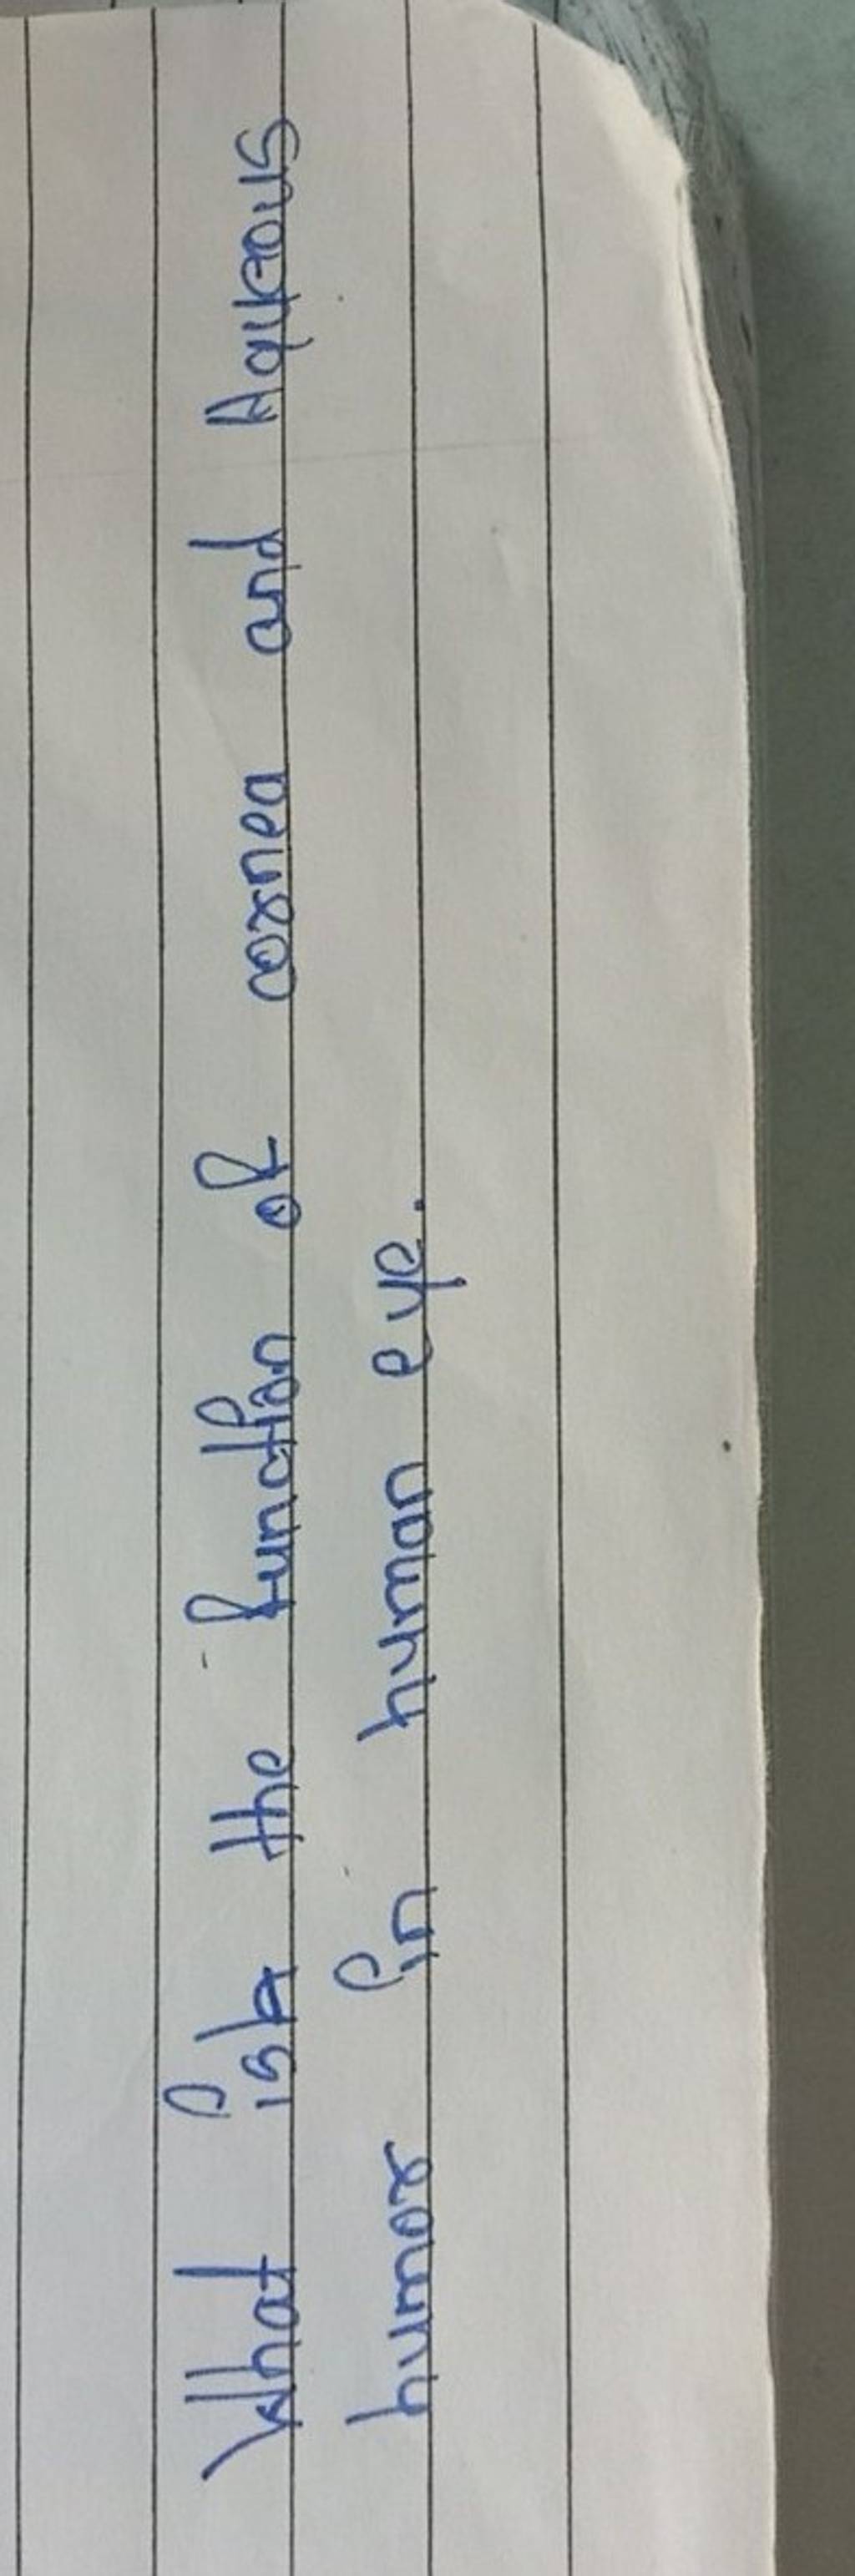 What is the function of cornea and Aqueous
humor in human eye.